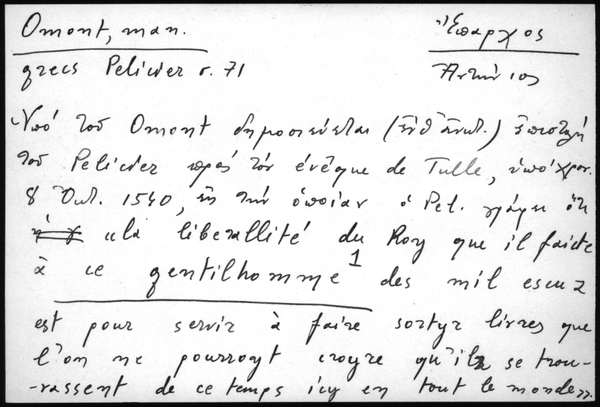 Omont, man.
Ἔπαρχος
grecs Pelicier σ. 71
Ἀντώνιος
Ὑπό τοῦ Omont δημοσιεύεται (ἔνθ' ἀνωτ.) ἐπιστολή
τοῦ Pelicier πρός τόν évêque de Tulle, ὑπό χρον.
8 Ὀκτ. 1540, ἐν τῇ ὁποίᾳ ὁ Pel. γράφει ὅτι
«la liberallité du Roy que il faicte
à ce gentilhomme¹ des mil escuz
est pour servir à faire sortyr livres que
l'on ne pourroyt croyre qu'ilz se trou-
-vassent de ce temps icy en tout le monde».